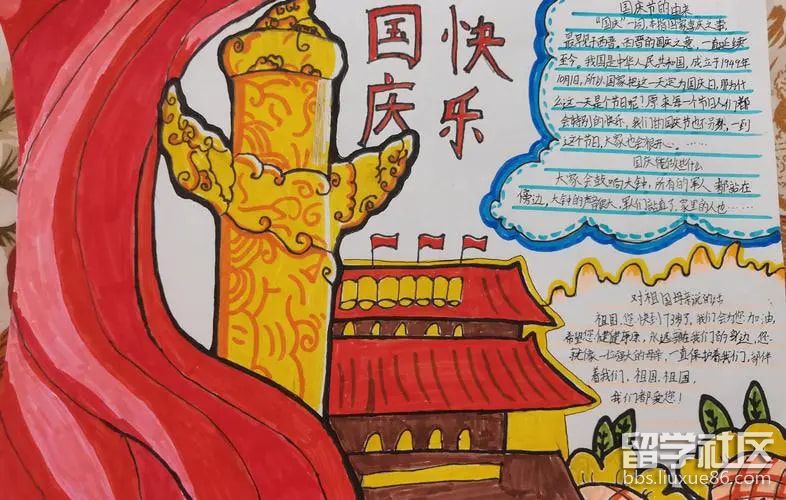 国庆
快乐
国庆节的由来
"国庆"一词,本指国家喜庆之事,
最早见于西晋,西晋的国庆之事,一直延续
至今。我国是中华人民共和国,成立于1949年
10月1日,所以国家把这一天定为国庆日,那为什
么这一天是个节日呢?原来每一个节日人们都
会特别的快乐,我们的国庆节也不另外,一到
这个节日,大家也会很开心。……
国庆能做些什么
大家会敲响大钟,所有的军人都站在
傍边,大钟的声音很大,军人们站直了,家里的人也……
对祖国母亲说的话
祖国,您快到73岁了,我们会为您加油,
希望您健健康康,永远在我们的身边,您
就像一位强大的母亲,一直保护着我们,陪伴
着我们,祖国,祖国,
我们都爱您!
留学社区
bbs.liuxue86.com